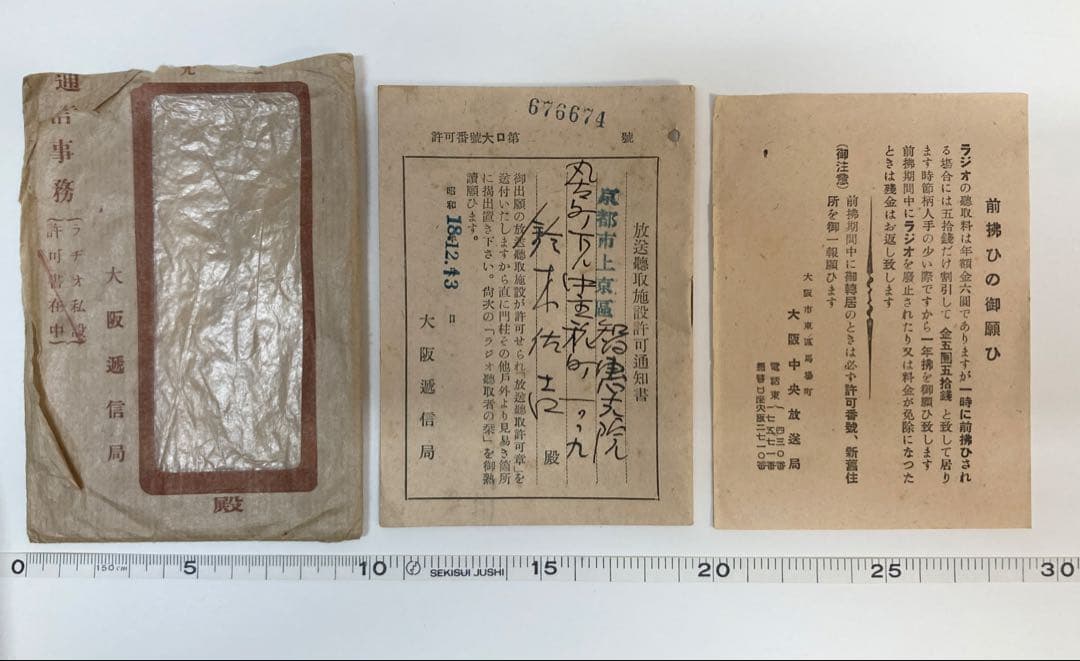 通信事務
(ラヂオ私設
許可書在中)
大阪遞信局
殿
676674
許可番號大ロ第 號
放送聽取施設許可通知書
京都市上京區智惠光院
丸太町下ル中主税町一〇九
鈴木佐吉 殿
御出願の放送聽取施設が許可せられ「放送聽取許可章」を
送付いたしますから直に門柱その他戸外より見易き箇所
に揭出置き下さい。尙次の「ラジオ聽取者の栞」を御熟
讀願ひます。
昭和18.12.43
日
大阪遞信局
前拂ひの御願ひ
ラジオの聽取料は年額金六圓でありますが一時に前拂ひされ
る場合には五拾錢だけ割引して金五圓五拾錢と致して居り
ます時節柄人手の少い際ですから一年拂を御願ひ致します
前拂期間中にラジオを廢止されたり又は料金が免除になつた
ときは殘金はお返し致します
(御注意)
前拂期間中に御轉居のときは必す許可番號、新舊住
所を御一報願ひます
大阪市東區馬場町
大阪中央放送局
0 5 10 15 20 25 30
150cm
SEKISUI JUSHI